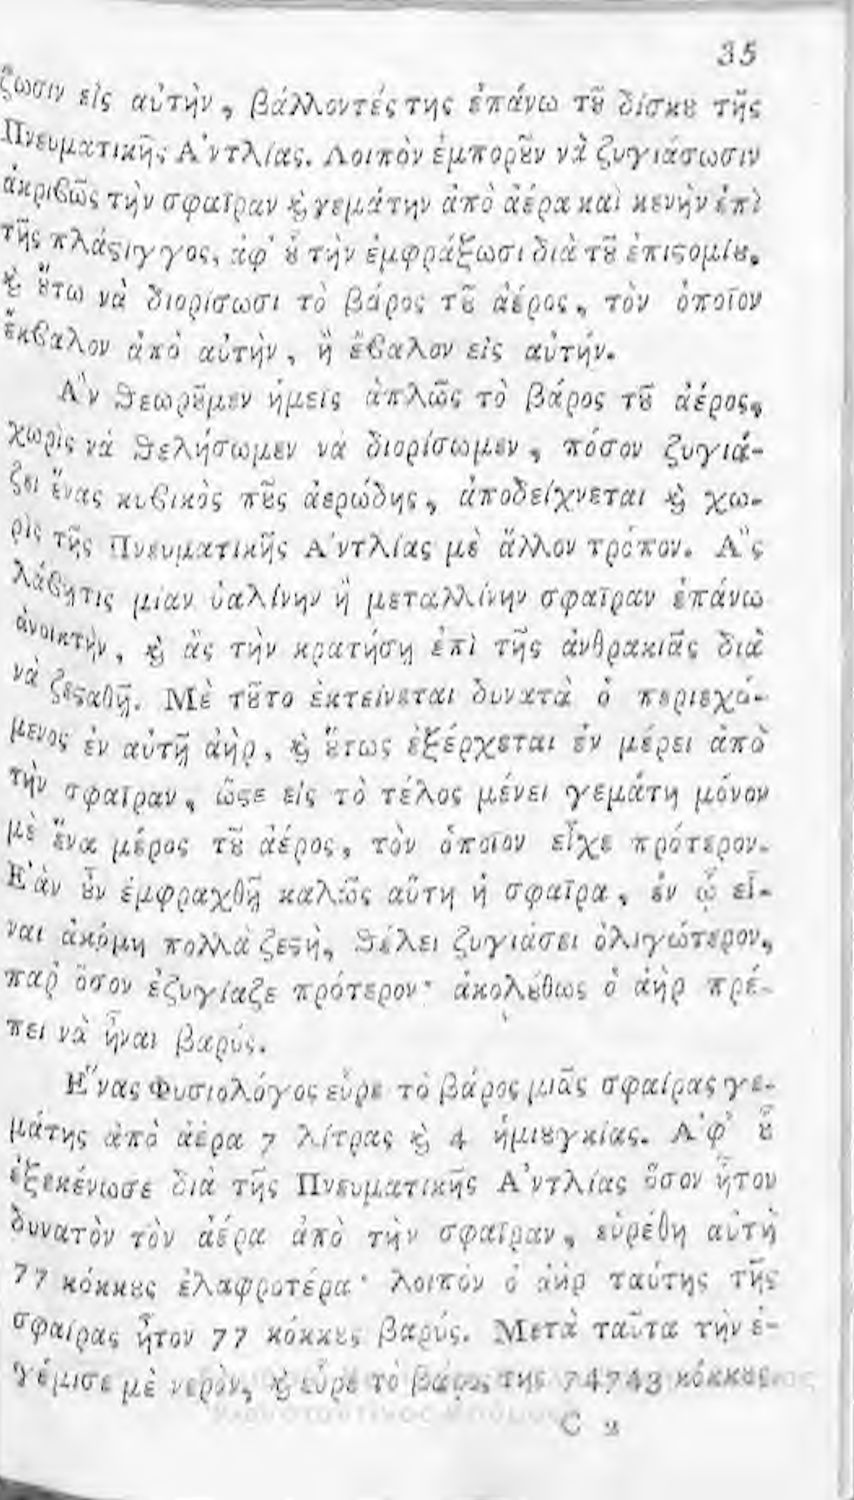 35
ζωσιν εἰς αὐτὴν, βάλλοντές της ἐπάνω τȣ͂ δίσκȣ τῆς
Πνευματικῆς Ἀντλίας. Λοιπὸν ἐμπορȣ͂ν νὰ ζυγιάσωσιν
ἀκριβῶς τὴν σφαῖραν ϗ γεμάτην ἀπὸ ἀέρα καὶ κενὴν ἐπὶ
τῆς πλάϛιγγος, ἀφ' ȣ̔͂ τὴν ἐμφράξωσι διὰ τȣ͂ ἐπιϛομίȣ,
ϗ ȣ̔́τω νὰ διορίσωσι τὸ βάρος τȣ͂ ἀέρος, τὸν ὁποῖον
ἔκβαλον ἀπὸ αὐτὴν, ἢ ἔβαλον εἰς αὐτήν.
Ἂν θεωρȣ͂μεν ἡμεῖς ἁπλῶς τὸ βάρος τȣ͂ ἀέρος,
χωρὶς νὰ θελήσωμεν νὰ διορίσωμεν, πόσον ζυγιά-
ζει ἕνας κυβικὸς πȣ͂ς ἀερώδης, ἀποδείχνεται ϗ χω-
ρὶς τῆς Πνευματικῆς Ἀντλίας μὲ ἄλλον τρόπον. Ἂς
λάβῃτις μίαν ὑαλίνην ἢ μεταλλίνην σφαῖραν ἐπάνω
ἀνοικτὴν, ϗ ἂς τὴν κρατήσῃ ἐπὶ τῆς ἀνθρακιᾶς διὰ
νὰ ζεϛαθῇ. Μὲ τȣ͂το ἐκτείνεται δυνατὰ ὁ περιεχό-
μενος ἐν αὐτῇ ἀὴρ, ϗ ȣ̔́τως ἐξέρχεται ἐν μέρει ἀπὸ
τὴν σφαῖραν, ὥϛε εἰς τὸ τέλος μένει γεμάτη μόνον
μὲ ἕνα μέρος τȣ͂ ἀέρος, τὸν ὁποῖον εἶχε πρότερον.
Ἐὰν ȣ̓͂ν ἐμφραχθῇ καλῶς αὕτη ἡ σφαῖρα, ἐν ᾧ εἶ-
ναι ἀκόμη πολλὰ ζεϛὴ, θέλει ζυγιάσει ὀλιγώτερον,
παρ' ὅσον ἐζυγίαζε πρότερον· ἀκολȣ́θως ὁ ἀὴρ πρέ-
πει νὰ ἦναι βαρύς.
Ἕνας Φυσιολόγος εὗρε τὸ βάρος μιᾶς σφαίρας γε-
μάτης ἀπὸ ἀέρα 7 λίτρας ϗ 4 ἡμιȣγκίας. Ἀφ' ȣ̔͂
ἐξεκένωσε διὰ τῆς Πνευματικῆς Ἀντλίας ὅσον ἦτον
δυνατὸν τὸν ἀέρα ἀπὸ τὴν σφαῖραν, εὑρέθη αὐτὴ
77 κόκκȣς ἐλαφροτέρα· λοιπὸν ὁ ἀὴρ ταύτης τῆς
σφαίρας ἦτον 77 κόκκȣς βαρύς. Μετὰ ταῦτα τὴν ἐ-
γέμισε μὲ νερὸν, ϗ εὗρε τὸ βάρος της 74743 κόκκȣς
C 2